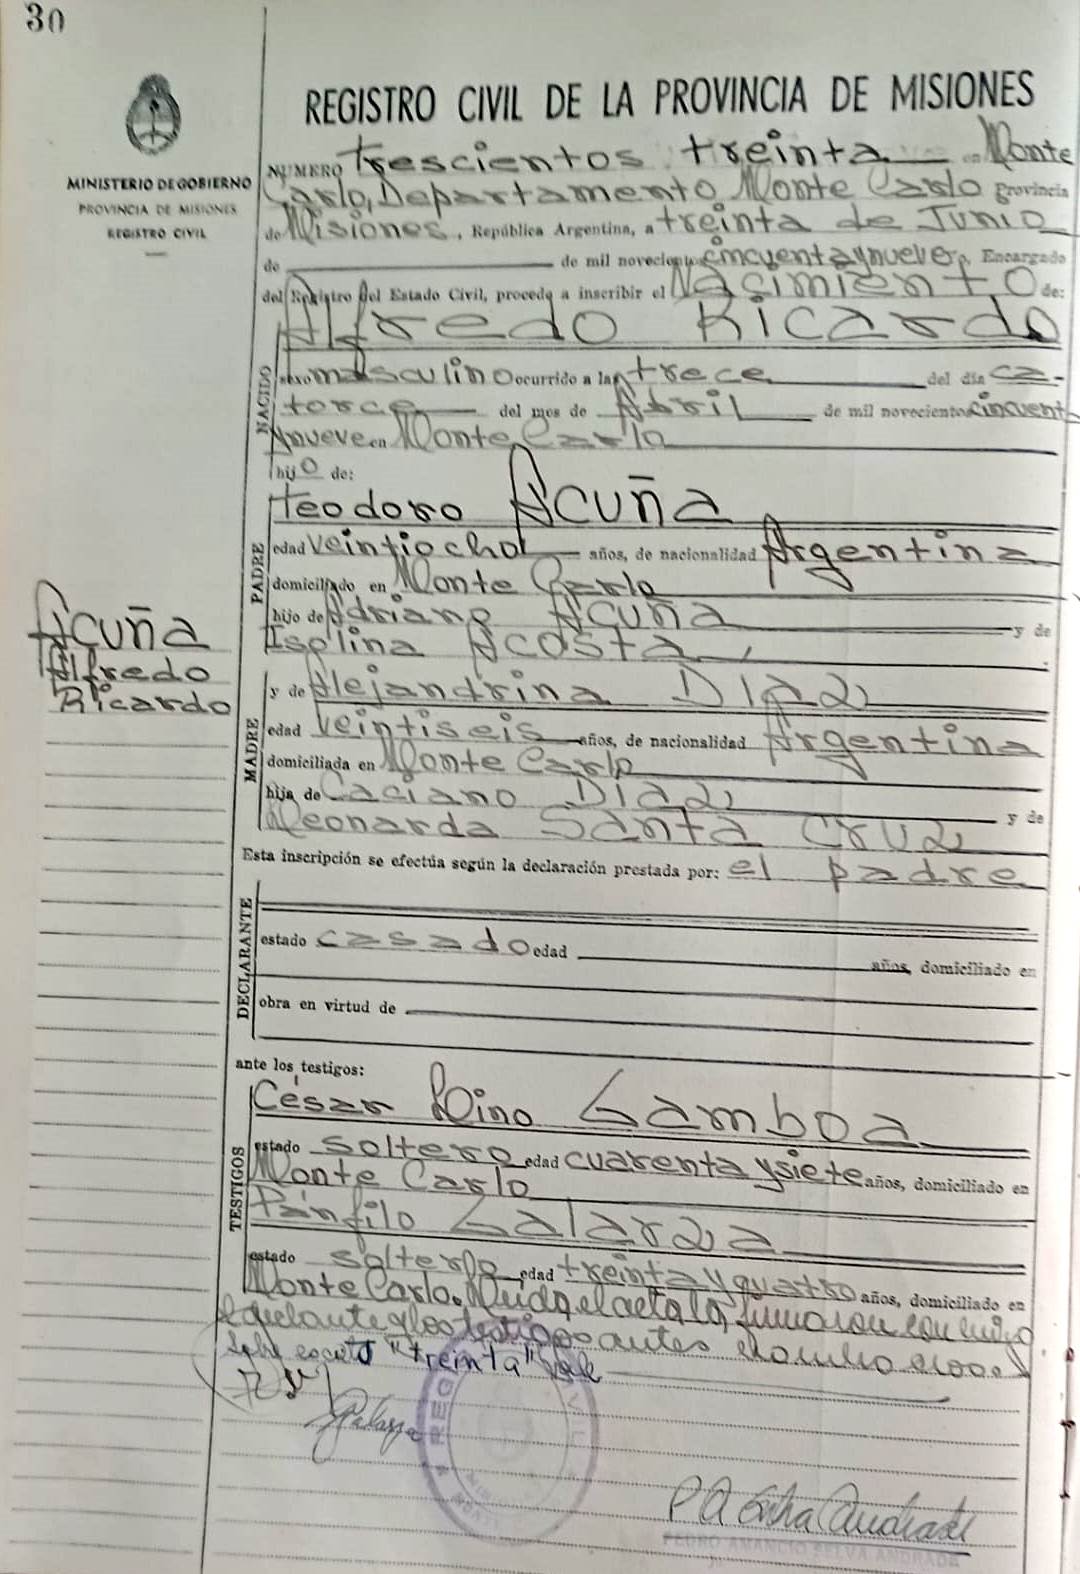 30
REGISTRO CIVIL DE LA PROVINCIA DE MISIONES
MINISTERIO DE GOBIERNO
PROVINCIA DE MISIONES
REGISTRO CIVIL
NUMERO trescientos treinta en Monte
Carlo, Departamento Monte Carlo provincia
de Misiones, República Argentina, a treinta de Junio
de de mil novecientos cincuenta y nueve, Encargado
del Registro del Estado Civil, procedo a inscribir el Nacimiento de:
Alfredo Ricardo
NACIDO
sexo masculino ocurrido a las trece del día ca-
torce del mes de Abril de mil novecientos cincuenta
y nueve en Monte Carlo
hijo de:
Teodoro Acuña
PADRE
edad veintiocho años, de nacionalidad Argentina
domiciliado en Monte Carlo
hijo de Adriano Acuña y de
Isolina Acosta,
Acuña
Alfredo
Ricardo
y de Alejandrina Diaz
MADRE
edad veintiseis años, de nacionalidad Argentina
domiciliada en Monte Carlo
hija de Caciano Diaz y de
Leonarda Santa Cruz
Esta inscripción se efectúa según la declaración prestada por: el padre
DECLARANTE
estado casado edad años, domiciliado en
obra en virtud de
ante los testigos:
César Lino Gamboa
TESTIGOS
estado soltero edad cuarenta y siete años, domiciliado en
Monte Carlo
Pánfilo Galarza
estado soltero edad treinta y cuatro años, domiciliado en
Monte Carlo. Leida el acta la firmaron conmigo
el y los testigos antes
Sobre "treinta" Vale
Galarza
REG
PEDRO AMANCIO SELVA ANDRADE